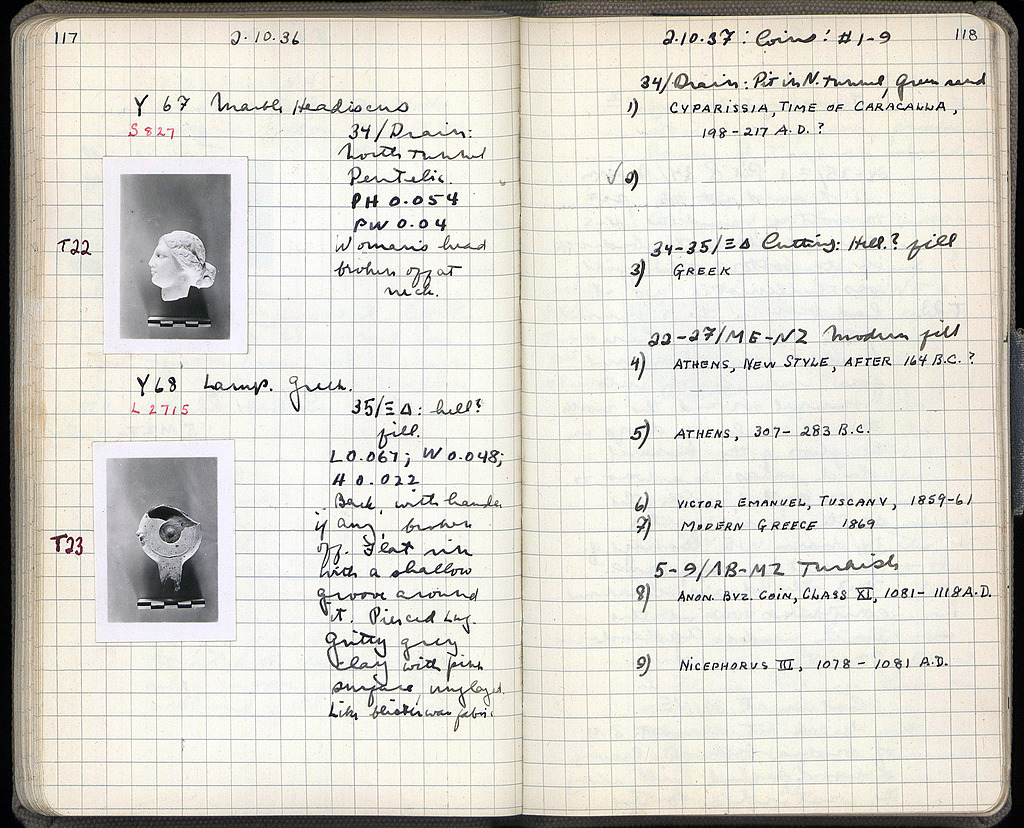 117
2.10.36
Y 67 Marble Head
S 827
34/Drain:
North Tunnel
Pentelic.
PH 0.054
PW 0.04
Woman's head
broken off at
neck.
T22
Y 68 Lamp. Greek.
L 2715
35/ΞΔ: hell?
fill.
L 0.067; W 0.048;
H 0.022
Back, with handle
if any, broken
off. Flat rim
with a shallow
groove around
it. Pierced lug.
Gritty grey
clay with pink
surface, unglazed.
Like blister ware fabric
T23
118
2.10.37: Coins: #1-9
34/Drain: Pit in N. Tunnel, Green sand
1) CYPARISSIA, TIME OF CARACALLA,
198-217 A.D.?
✓ 2)
34-35/ΞΔ Cutting: Hell.? fill
3) GREEK
22-27/ME-NZ Modern fill
4) ATHENS, NEW STYLE, AFTER 164 B.C.?
5) ATHENS, 307-283 B.C.
6) VICTOR EMANUEL, TUSCANY, 1859-61
7) MODERN GREECE 1869
5-9/ΛB-MZ Turkish
8) ANON. BYZ. COIN, CLASS XI, 1081-1118 A.D.
9) NICEPHORUS III, 1078-1081 A.D.